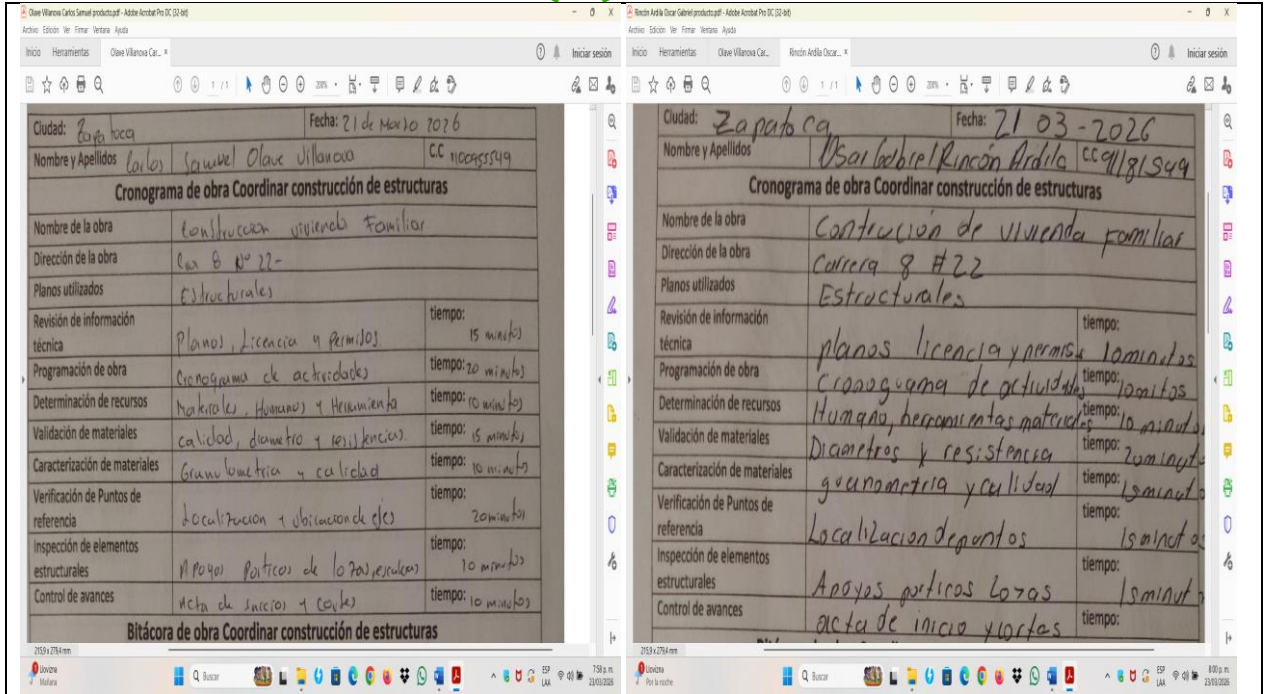 Olave Villanova Carlos Samuel producto.pdf - Adobe Acrobat Pro DC (32-bit)
Archivo Edición Ver Firmar Ventana Ayuda
Inicio Herramientas Olave Villanova Car... × Iniciar sesión
1 / 1 200%
Ciudad: Zapatoca Fecha: 21 de Marzo 2026
Nombre y Apellidos Carlos Samuel Olave Villanova C.C 1100955549
Cronograma de obra Coordinar construcción de estructuras
Nombre de la obra Construccion vivienda Familiar
Dirección de la obra Cra 8 Nº 22-
Planos utilizados Estructurales
Revisión de información técnica Planos, Licencia y Permisos tiempo: 15 minutos
Programación de obra Cronograma de actividades tiempo: 20 minutos
Determinación de recursos Materiales, Humanos y Herramienta tiempo: 10 minutos
Validación de materiales calidad, diametro y resistencias tiempo: 15 minutos
Caracterización de materiales Granulometria y calidad tiempo: 10 minutos
Verificación de Puntos de referencia Localizacion y ubicacion de ejes tiempo: 20 minutos
Inspección de elementos estructurales Apoyos Porticos de lozas, escaleras tiempo: 10 minutos
Control de avances Acta de inicios y cortes tiempo: 10 minutos
Bitácora de obra Coordinar construcción de estructuras
215,9 x 279,4 mm
Llovizna
Mañana
Buscar
ESP
LAA
7:58 p. m.
23/03/2026
Rincón Ardila Oscar Gabriel producto.pdf - Adobe Acrobat Pro DC (32-bit)
Archivo Edición Ver Firmar Ventana Ayuda
Inicio Herramientas Olave Villanova Car... Rincón Ardila Oscar... × Iniciar sesión
1 / 1 200%
Ciudad: Zapatoca Fecha: 21 03 -2026
Nombre y Apellidos Osar Gabriel Rincón Ardila CC 91181549
Cronograma de obra Coordinar construcción de estructuras
Nombre de la obra Contrucción de vivienda familiar
Dirección de la obra Carrera 8 #22
Planos utilizados Estructurales
Revisión de información técnica planos licencia y permiss tiempo: 10 minutos
Programación de obra Cronoguama de actividades tiempo: 10 mitos
Determinación de recursos Humano, herramientas materiales tiempo: 10 minutos
Validación de materiales Diametros y resistencia tiempo: 20 minutos
Caracterización de materiales guanometria y calidad tiempo: 15 minuto
Verificación de Puntos de referencia Localizacion de puntos tiempo: 15 minutos
Inspección de elementos estructurales Apoyos porticos Lozas tiempo: 15 minuto
Control de avances acta de inicio y cortes tiempo:
215,9 x 279,4 mm
Llovizna
Por la noche
Buscar
ESP
LAA
8:00 p. m.
23/03/2026